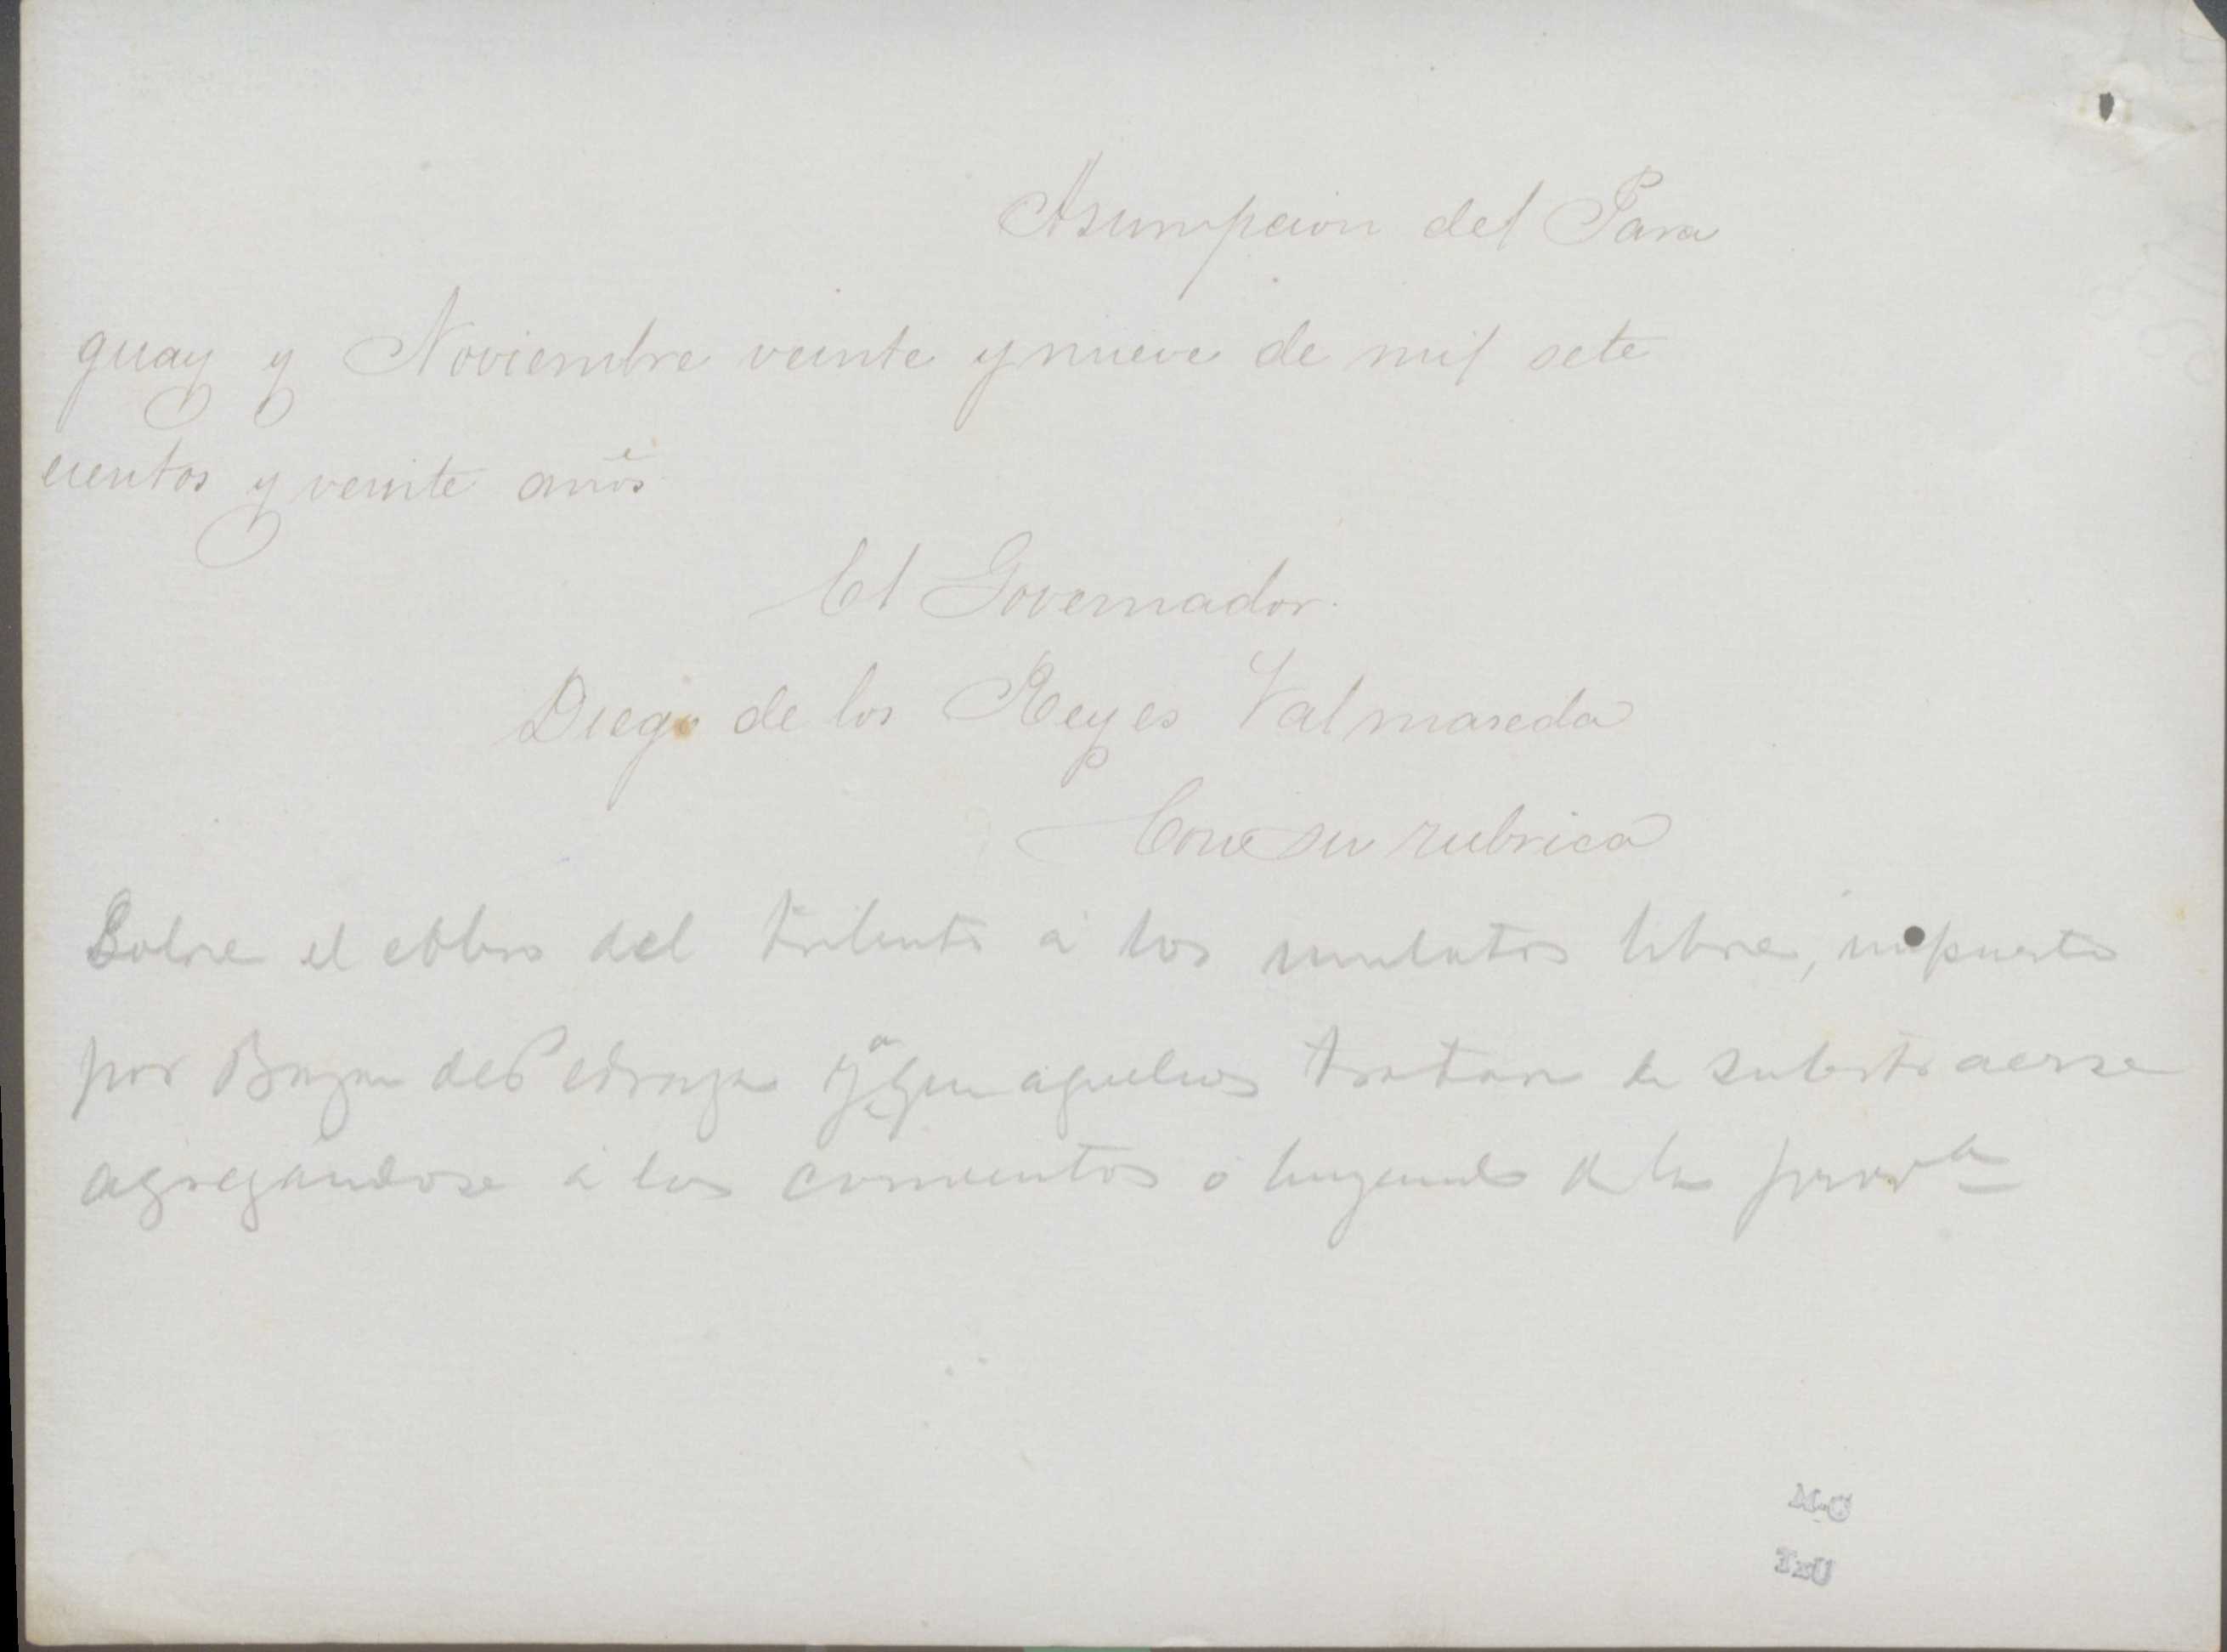 Asumpcion del Para
guay y Noviembre veinte y nueve de mil sete
cientos y veinte años
El Governador.
Diego de los Reyes Valmaseda
Con su rubrica
Sobre el cobro del tributo á los mulatos libres, impuesto
por Bazan de Pedraza y que aquellos tratan de substraerse
agregandose á los conventos ó huyendo de la prova
M-C
TxU